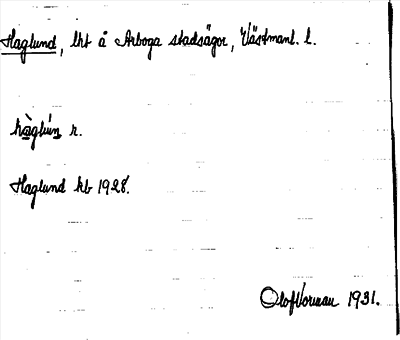 Haglund, lht å Arboga stadsägor, Västmanl. l.
hàglún r.
Haglund kb 1928.
Olof Vorman 1931.